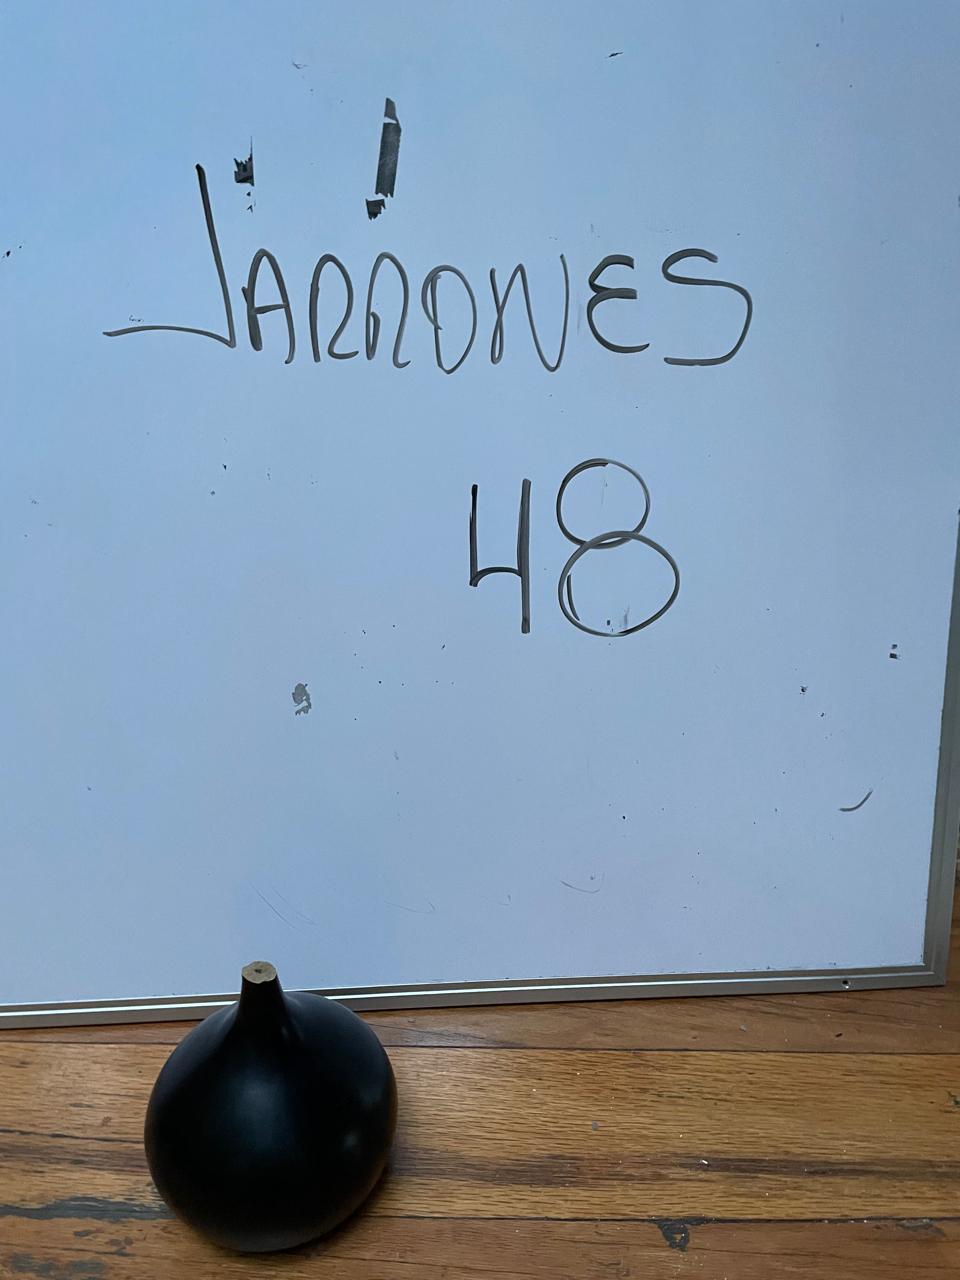 JARRONES
48